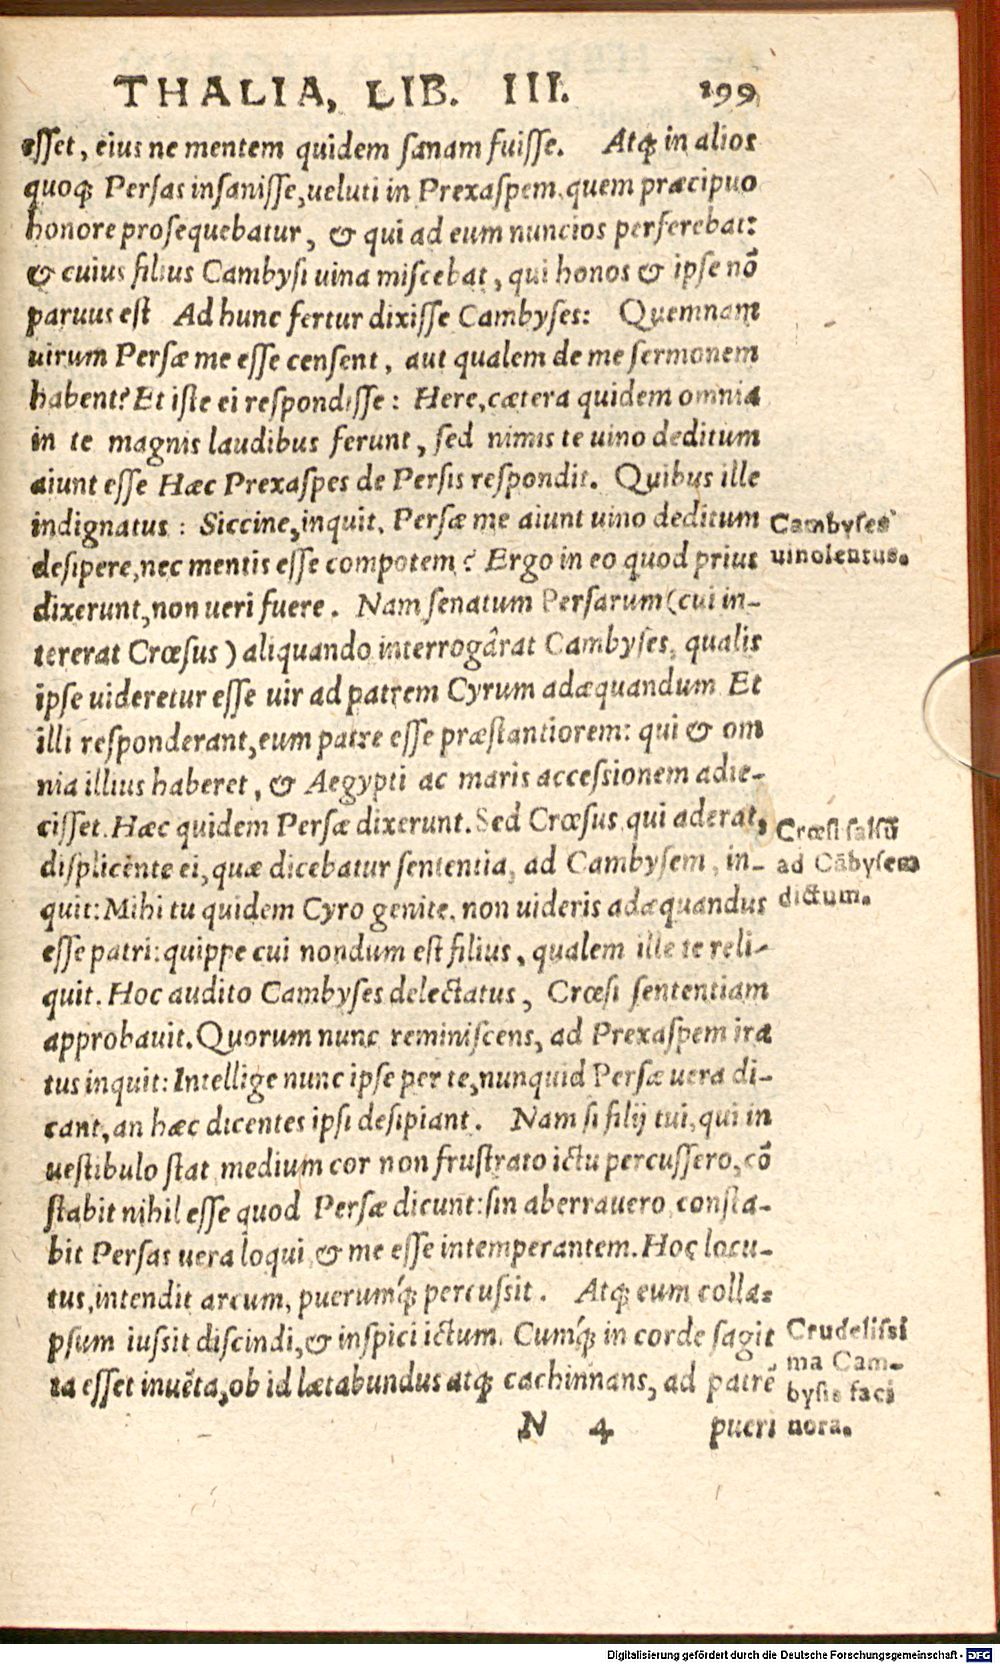 THALIA, LIB. III. 199
esset, eius ne mentem quidem sanam fuisse. Atq́ꝫ in alios
quoqꝫ Persas insanisse, ueluti in Prexaspem, quem præcipuo
honore prosequebatur, & qui ad eum nuncios perferebat:
& cuius filius Cambysi uina miscebat, qui honos & ipse nō
paruus est Ad hunc fertur dixisse Cambyses: Quemnam
uirum Persæ me esse censent, aut qualem de me sermonem
habent? Et iste ei respondisse: Here, cætera quidem omnia
in te magnis laudibus ferunt, sed nimis te uino deditum
aiunt esse Hæc Prexaspes de Persis respondit. Quibus ille
indignatus: Siccine, inquit, Persæ me aiunt uino deditum
Cambyses
desipere, nec mentis esse compotem? Ergo in eo quod prius
uinolentus.
dixerunt, non ueri fuere. Nam senatum Persarum (cui in-
tererat Crœsus) aliquando interrogârat Cambyses, qualis
ipse uideretur esse uir ad patrem Cyrum adæquandum Et
illi responderant, eum patre esse præstantiorem: qui & om
nia illius haberet, & Aegypti ac maris accessionem adie-
cisset. Hæc quidem Persæ dixerunt. Sed Crœsus, qui aderat,
Crœsi falsū
displicēte ei, quæ dicebatur sententia, ad Cambysem, in-
ad Cābysem
quit: Mihi tu quidem Cyro genite, non uideris adæquandus
dictum.
esse patri: quippe cui nondum est filius, qualem ille te reli-
quit. Hoc audito Cambyses delectatus, Crœsi sententiam
approbauit. Quorum nunc reminiscens, ad Prexaspem ira
tus inquit: Intellige nunc ipse per te, nunquid Persæ uera di-
cant, an hæc dicentes ipsi desipiant. Nam si filij tui, qui in
uestibulo stat, medium cor non frustrato ictu percussero, cō
stabit nihil esse quod Persæ dicunt: sin aberrauero, consta-
bit Persas uera loqui, & me esse intemperantem. Hoc locu-
tus, intendit arcum, puerumq́ꝫ percussit. Atqꝫ eum colla-
psum iussit discindi, & inspici ictum. Cumq́ꝫ in corde sagit
Crudelissi
ma Cam-
ta esset inuēta, ob id lætabundus atqꝫ cachinnans, ad patrē
bysis faci
N 4 pueri
nora.
Digitalisierung gefördert durch die Deutsche Forschungsgemeinschaft - DFG